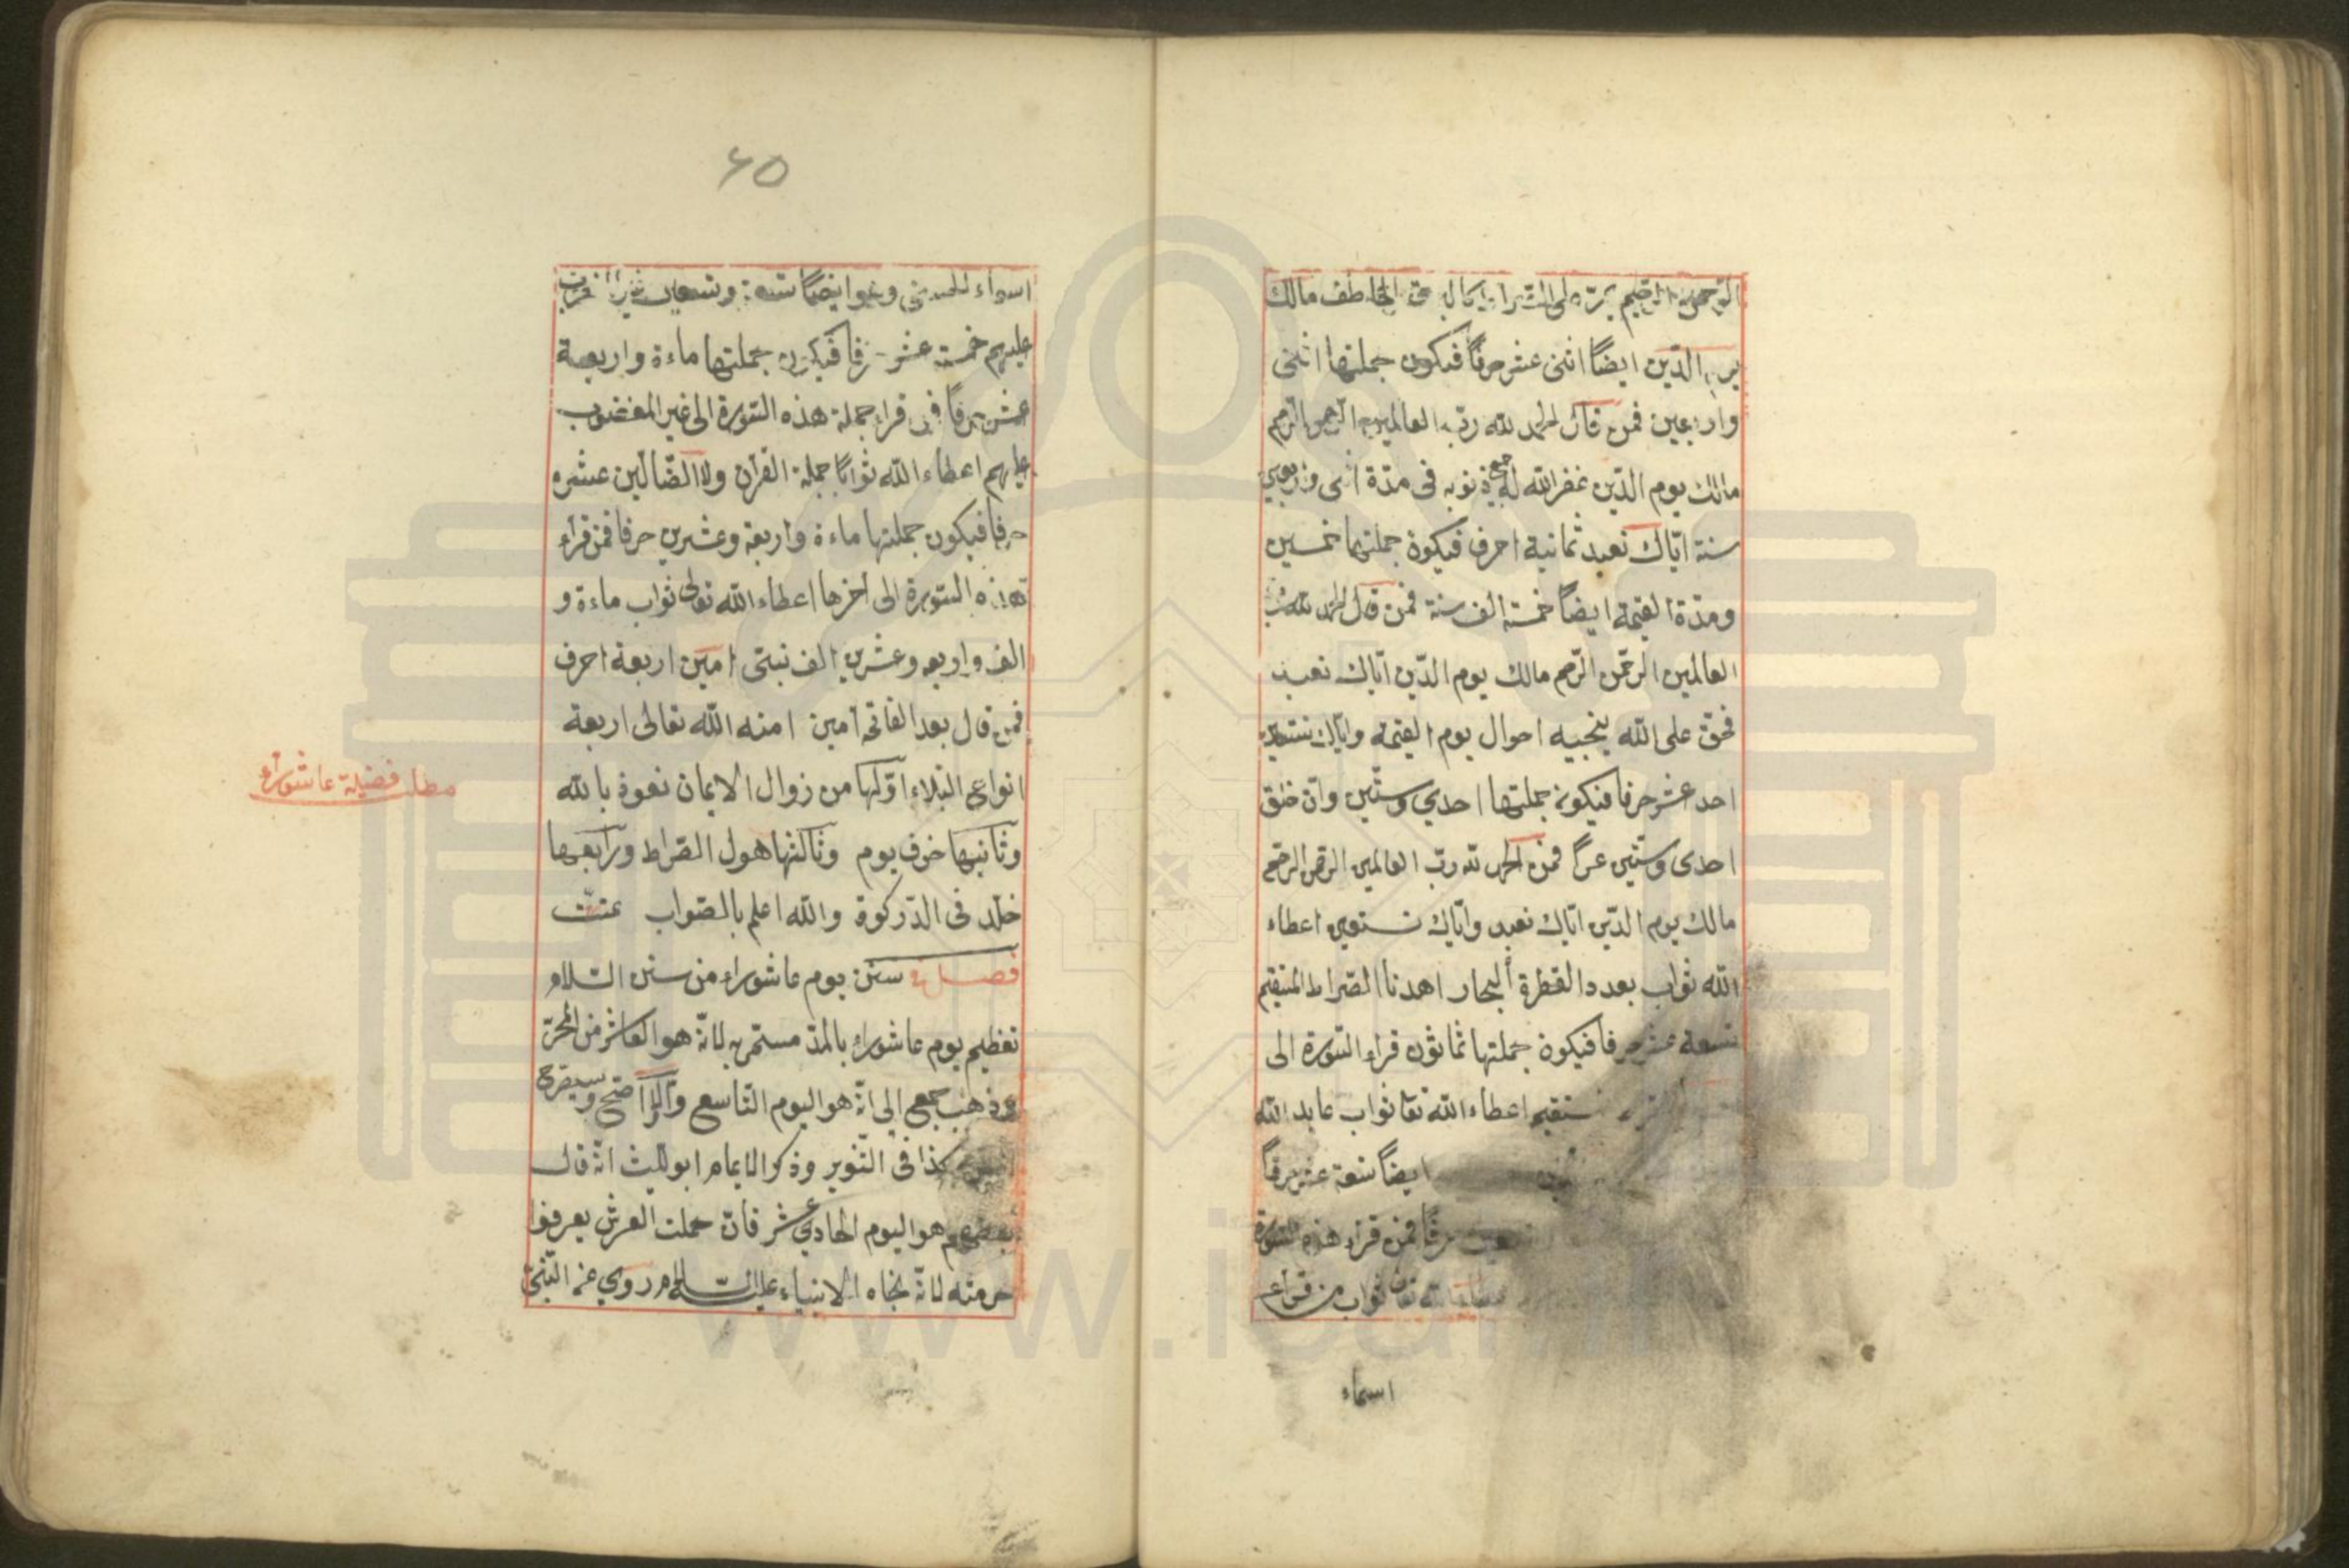 الرحمن الرحيم يمرّ على الصّراط كالبرق الخاطف مالك
يوم الدّين ايضاً اثنى عشر حرفاً فيكون جملتها اثنى
واربعين فمن قال الحمد لله ربّ العالمين الرحمن الرحيم
مالك يوم الدّين غفر الله له جميع ذنوبه فى مدّة اثنى واربعين
سنة ايّاك نعبد ثمانية احرف فيكون جملتها خمسين
ومدّة القيمة ايضاً خمسة الف سنة فمن قال الحمد لله ربّ
العالمين الرّحمن الرّحيم مالك يوم الدّين ايّاك نعبد
فحقّ على الله ينجيه احوال يوم القيمة وايّاك نستعين
احد عشر حرفا فيكون جملتها احدي وستّين وانّ خلق
احدى وستّين فمن الحمد لله ربّ العالمين الرحمن الرحيم
مالك يوم الدّين ايّاك نعبد وايّاك نستعين اعطاء
الله ثواب بعدد القطرة البحار اهدنا الصّراط المستقيم
تسعة عشر حرفا فيكون جملتها ثمانون قراء السّورة الى
ستقيم اعطاء الله تعا ثواب عابد الله
ايضاً تسعة عشر حرفاً
حرفاً فمن قراء هذه السّورة
ثواب من قراء
اسماء
٦٥
اسماء الحسنى وهو ايضاً تسعة وتسعين غير المغضوب
عليهم خمسة عشر حرفا فيكون جملتها ماءة واربعة
عشر حرفاً فمن قراء جملة هذه السّورة الى غير المغضوب
عليهم اعطاء الله ثواباً جملة القرآن ولا الضّالّين عشره
حرفا فيكون جملتها ماءة واربعة وعشرين حرفا فمن قراء
هذه السّورة الى اخرها اعطاء الله تعالى ثواب ماءة و
الف واربعه وعشرين الف نبىّ امين اربعة احرف
فمن قال بعد الفاتحة آمين امنه الله تعالى اربعة
انواع البلاء اوّلها من زوال الايمان نعوذ بالله
وثانيها خوف يوم وثالثها هول الصّراط ورابعها
خلّد فى الدّركوة والله اعلم بالصّواب عتّت
فصل سنن يوم عاشوراء من سنن السّلام
تعظيم يوم عاشوراء بالمدّ مستمرّ به لانّه هو العاشر من المحرّم
وذهب جمع الى انّه هو اليوم التّاسع والاوّل اصحّ وسيصرح
كذا فى التّنوير وذكر الامام ابو اللّيث انّه قال
بعضهم هو اليوم الحادي عشر فانّ حملت العرش يعرفوا
حرمته لانّه نجاه الانبياء عليه السّلام روي عن النّبىّ
مطلب فضيلة عاشوراء